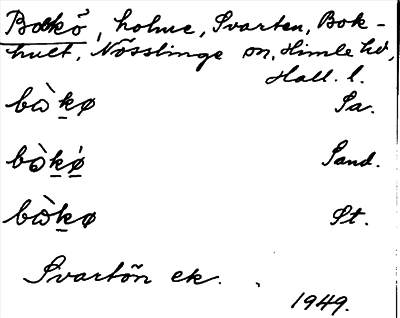 Bokö, holme, Svarten, Bok-
hult, Nösslinge sn, Himle hd,
Hall. l.
bòkø Sa.
bòkø Sand.
bòkø St.
Svartön ek.
1949.